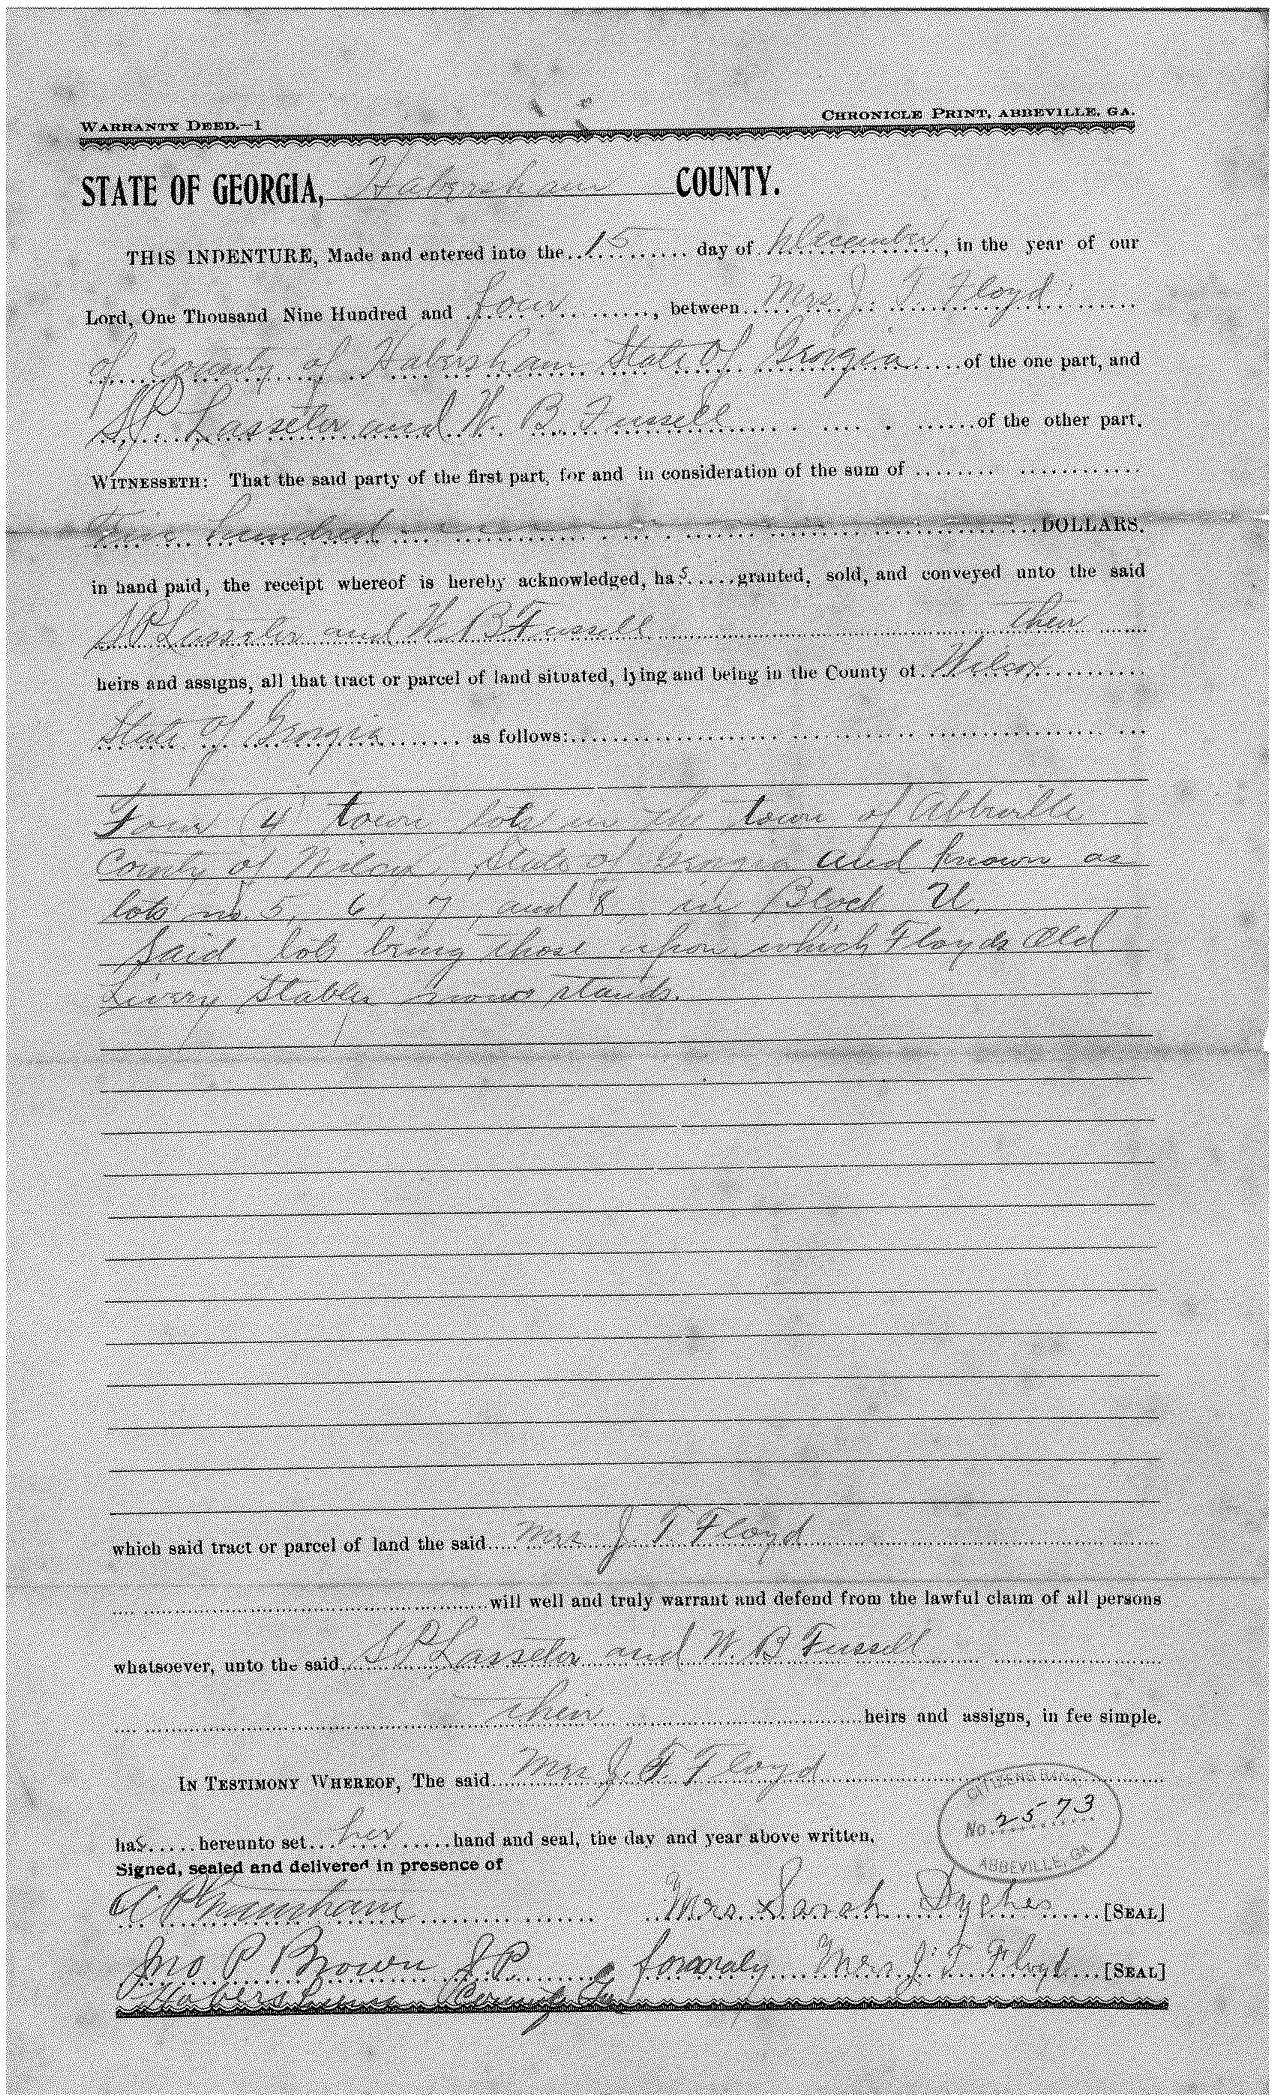 WARRANTY DEED.—1
CHRONICLE PRINT, ABBEVILLE, GA.
STATE OF GEORGIA, Habersham COUNTY.
THIS INDENTURE, Made and entered into the 15 day of December, in the year of our
Lord, One Thousand Nine Hundred and four, between Mrs J. T Floyd
of County of Habersham State Of Georgia of the one part, and
S P Lasseter and W. B. Fussell of the other part.
WITNESSETH: That the said party of the first part, for and in consideration of the sum of
Five hundred DOLLARS.
in hand paid, the receipt whereof is hereby acknowledged, has granted, sold, and conveyed unto the said
S P Lasseter and W. B Fussell their
heirs and assigns, all that tract or parcel of land situated, lying and being in the County of Wilcox
State Of Georgia as follows:
Four (4) town lots in the town of Abbeville
County of Wilcox, State of Georgia and known as
lots no 5, 6, 7, and 8, in Block U.
Said lots being those upon which Floyds Old
Livery Stables now stands.
which said tract or parcel of land the said Mrs J T Floyd
will well and truly warrant and defend from the lawful claim of all persons
whatsoever, unto the said S P Lasseter and W. B Fussell
their heirs and assigns, in fee simple.
IN TESTIMONY WHEREOF, The said Mrs J. T Floyd
has hereunto set her hand and seal, the day and year above written.
CITIZENS BANK
No. 2573
ABBEVILLE, GA
Signed, sealed and delivered in presence of
Mrs. Sarah Dykes [SEAL]
Jno P Brown J.P. formaly Mrs J. T Floyd [SEAL]
Habersham County Ga